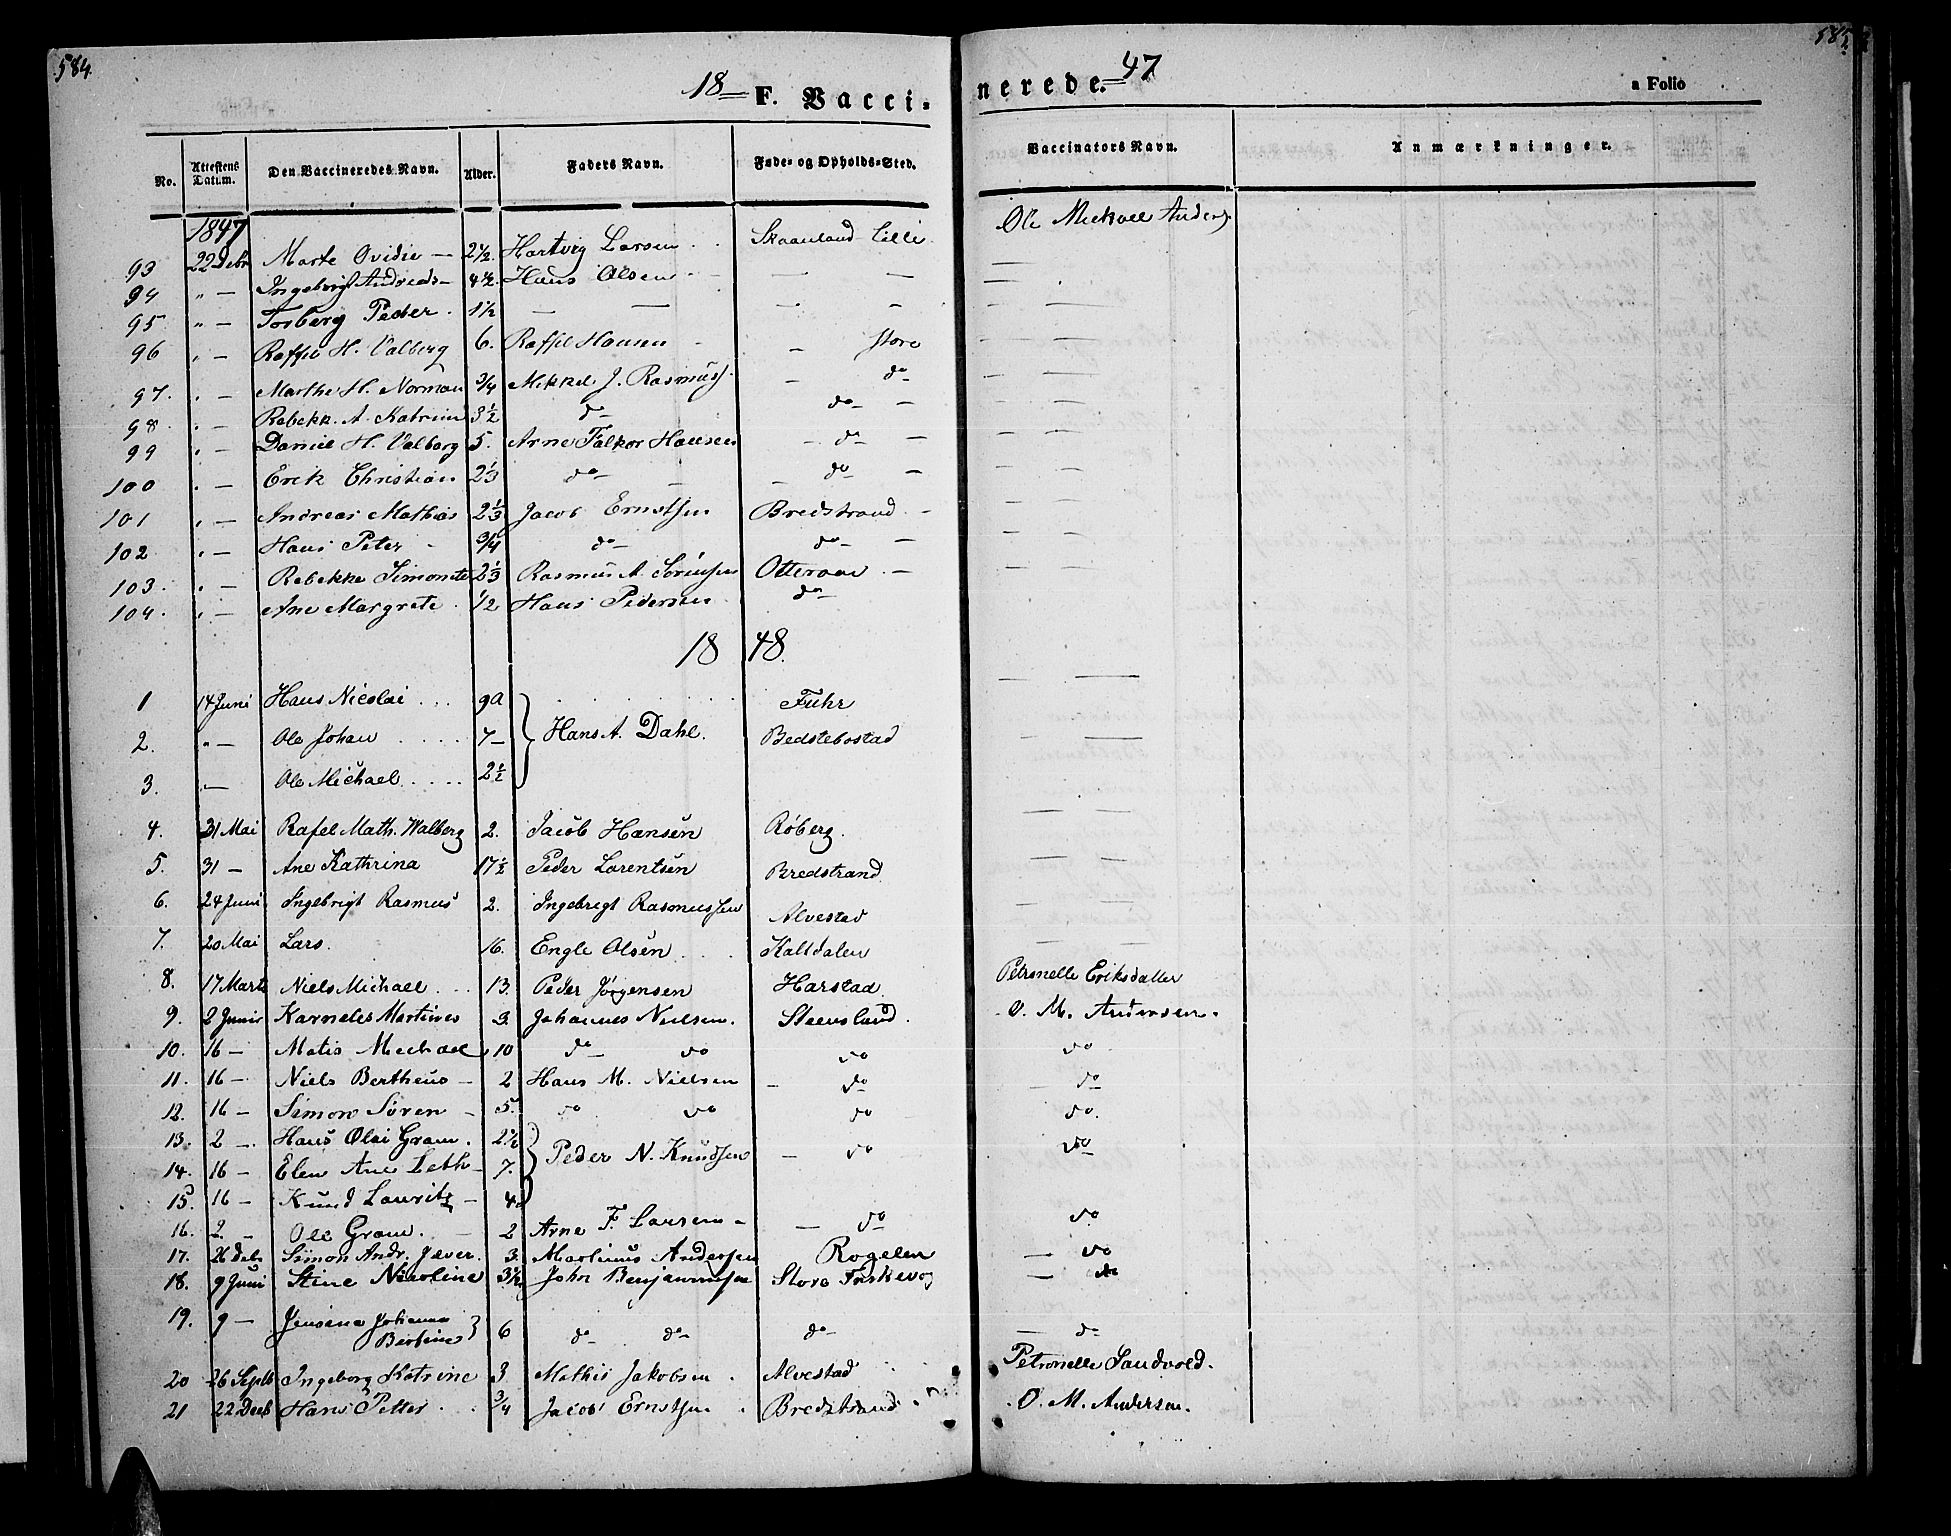 584.
585.
18 47
F. Vaccinerede.
a Folio
No. | Attestens Datum. | Den Vaccineredes Navn. | Alder. | Faders Navn. | Føde- og Opholds-Sted. | Vaccinators Navn. | Anmærkninger.
1847
93 | 22 Debr | Marte Ovidie — | 2½. | Hartvig Larsen | Skaanland Lille | Ole Mickael Anders
94 | " — | Ingebrigt Andreas — | 4½. | Hans Olsen — | — — | —
95 | " — | Torberg Peder. | 1½ | — — | — — | — —
96 | " — | Raffel H. Valberg | 6. | Raffel Hansen | — Store | — —
97. | " — | Marthe H. Norman | ¾ | Mikkel J. Rasmuss. | — do | — —
98 | " — | Rebekk. A. Katrine | 3½ | do | do — | — —
99 | " — | Daniel H. Valborg | 5. | Arne Falkor Hansen | — do — | — —
100 | " — | Erik Christian | 2⅓ | do — | — do — | — —
101 | " — | Andreas Mathias | 2⅓ | Jacob Ernstsen | Bredstrand — | — —
102 | " — | Hans Peter | ¾ | do | do — | — —
103. | " — | Rebekke Simonete | 2⅓ | Rasmus A. Sørensen | Otteraae — | — —
104. | " — | Ane Margrete | ½ | Hans Pedersen | do | — —
1848.
1 | 14 Juni | Hans Nicolai | 9a | Hans A. Dahl. | Fuhr | — —
2. | " — | Ole Johan | 7 — | | Bedstebostad | — —
3. | " — | Ole Michael | 2½ | | | — —
4. | 31 Mai | Rafel Math. Walberg | 2. | Jacob Hansen | Røberg. | — —
5. | 31 — | Ane Kathrina | 17½ | Peder Lorentsen | Bredstrand | — —
6. | 24 Juni | Ingebrigt Rasmus | 2. | Ingebrigt Rasmussen | Alvestad | — —
7. | 20 Mai | Lars. | 16. | Engle Olsen | Kaltdalen | — —
8. | 17 Marts | Niels Michael | 13. | Peder Jörgensen | Harstad | Petronelle Eriksdatter
9. | 2 Juni | Karneles Martines | 3. | Johannes Nielsen. | Steensland. | O. M. Andersen.
10. | 16 — | Matis Mechael | 10 | do do | do | do
11. | 16 — | Niels Bertheus — | 2 | Hans M. Nielsen | — do | — do
12. | 16 — | Simon Sören — | 5. | do do | do | do.
13. | 2 — | Hans Olai Gram. | 2½ | Peder N. Knudsen | — do | do
14. | 16 — | Elen Ane Leth — | 7.
15. | 16 — | Knud Lauritz — | 4
16. | 2. — | Ole Gram. — | 2 | Arne F. Larsen — | — do | do
17. | 26 Debr | Simon Andr. Jæver. | 3. | Martinus Andersen | Rogelen | — do
18. | 9 Juni | Stine Nicoline | 3½ | John Benjaminsen | Store | — do
19. | 9 — | Jensine Johanna Bertine | 6 | do do | do | — do
20 | 26 Septb | Ingeborg Katrine | 3 | Mathis Jakobsen. | Alvestad | Petronelle Sandvold.
21 | 22 Decb | Hans Petter. | ¾ | Jacob Ernstsen. | Bredstrand. | O. M. Andersen.